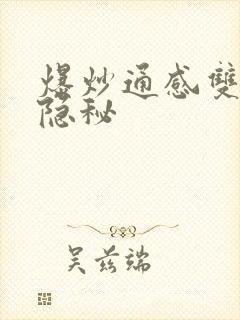 爆炒通感雙
隐秘
吴兹端